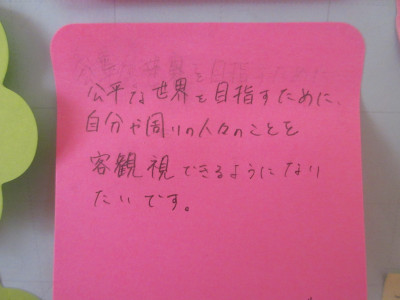 公平な世界を目指すために、
自分や周りの人々のことを
客観視できるようになり
たいです。